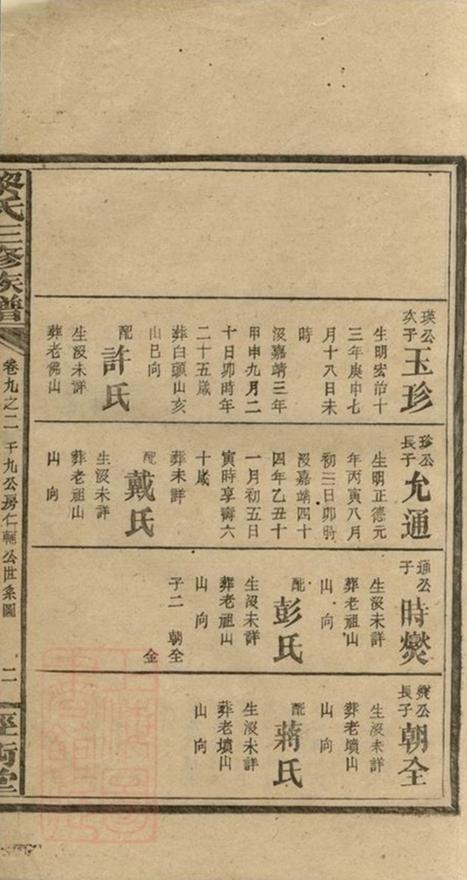 瑛公
次子
玉珍
生明宏治十
三年庚申七
月十八日未
時
沒嘉靖三年
甲申九月二
十日卯時年
二十五歲
葬白頭山亥
山巳向
配
許氏
生沒未詳
葬老佛山
珍公
長子
允通
生明正德元
年丙寅八月
初三日卯時
沒嘉靖四十
四年乙丑十
一月初五日
寅時享壽六
十歲
葬未詳
配
戴氏
生沒未詳
葬老祖山
山向
通公
子
時爕
生沒未詳
葬老祖山
山向
配
彭氏
生沒未詳
葬老祖山
山向
子二 朝全
金
爕公
長子
朝全
生沒未詳
葬老墳山
山向
配
蔣氏
生沒未詳
葬老墳山
山向
黎氏三修族譜
卷九之二 千九公房仁輔公世系圖
二